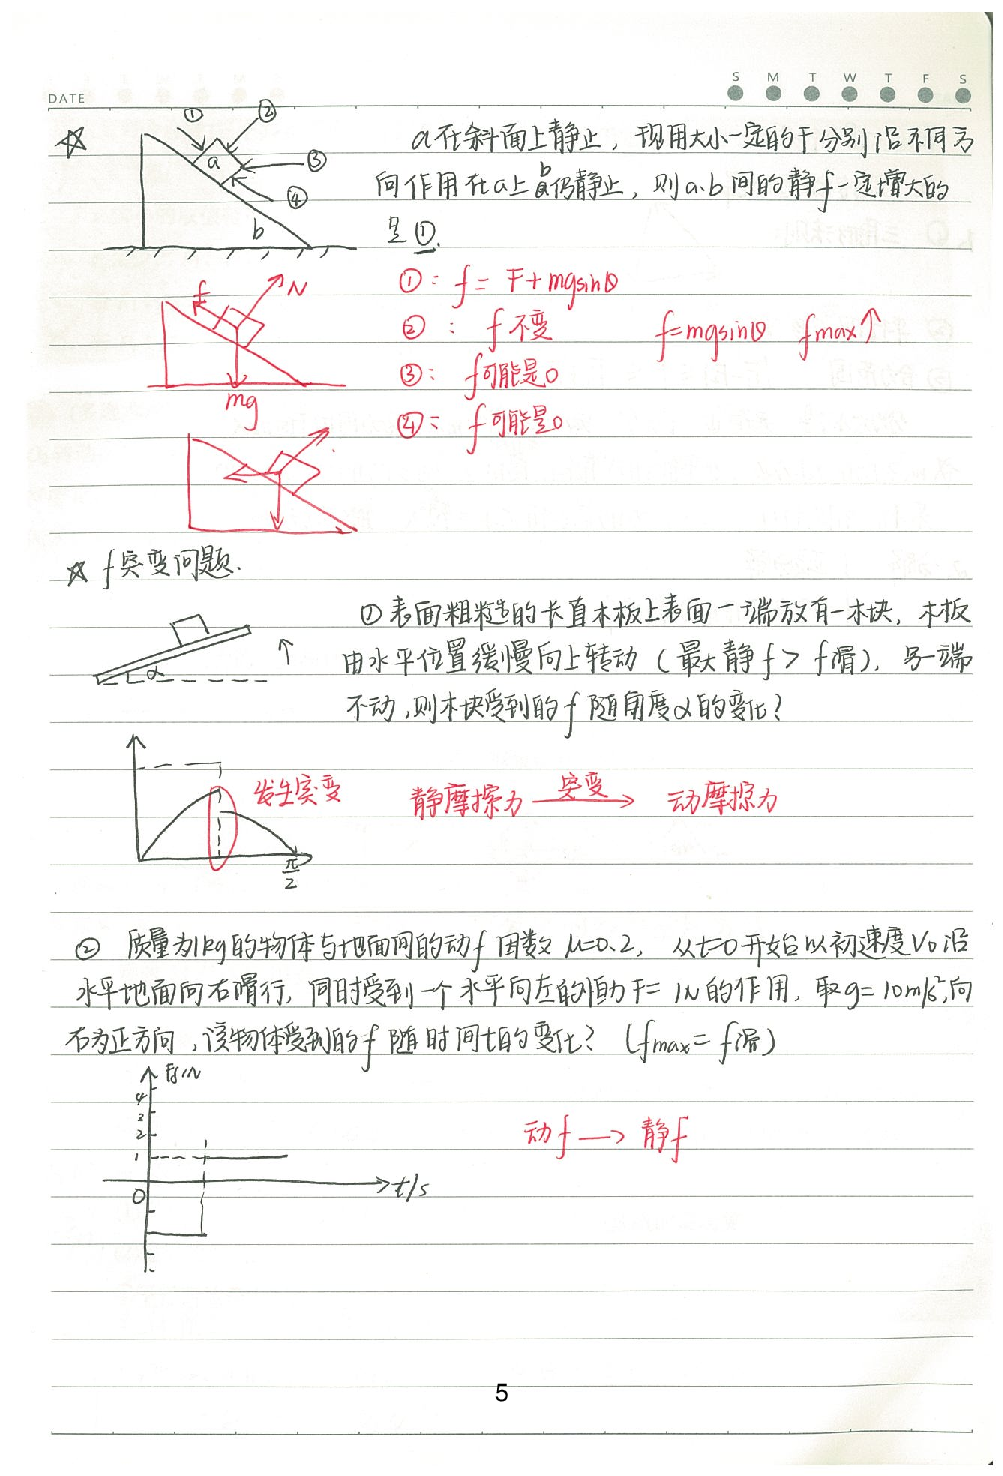 S M T W T F S
DATE
① ② ③ ④ a b
a在斜面上静止，现用大小一定的F分别沿不同方
向作用在a上 b仍静止，则a.b间的静f一定增大的
是①.
①: f = F+mgsinθ
②: f不变 f=mgsinθ fmax↑
③: f可能是0
④: f可能是0
f N
mg
☆ f突变问题.
①表面粗糙的长直木板上表面一端放有一木块，木板
由水平位置缓慢向上转动（最大静f > f滑），另一端
不动，则木块受到的f随角度α的变化？
α
发生突变 静摩擦力 突变 动摩擦力
π/2
② 质量为1kg的物体与地面间的动f因数 μ=0.2，从t=0开始以初速度V₀沿
水平地面向右滑行，同时受到一个水平向左的恒力F=1N的作用，取g=10m/s²，向
右为正方向，该物体受到的f随时间t的变化？（fmax = f滑）
f/N
4
3
2
1
0
t/s
动f → 静f
5